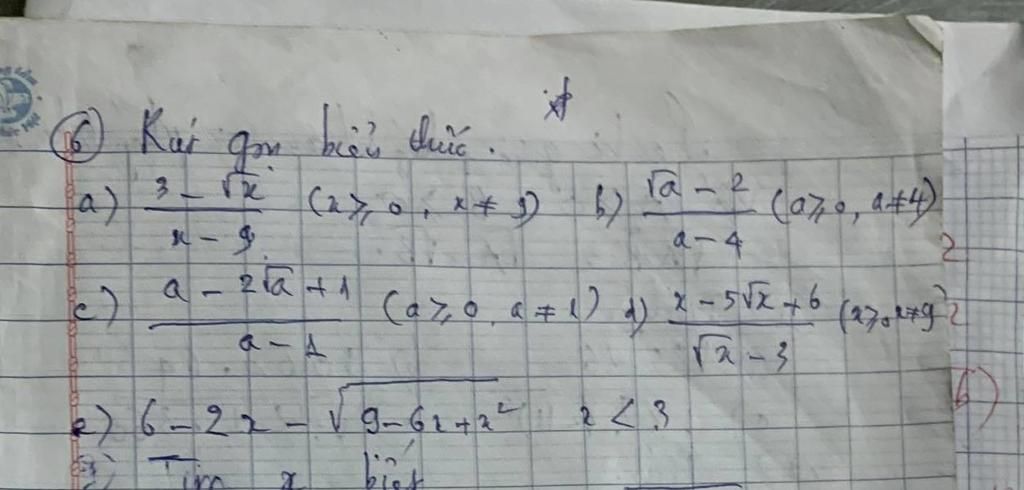 6 Rút gọn biểu thức.
a) \frac{3 - √x}{x - 9} (x ≥ 0, x ≠ 9) b) \frac{√a - 2}{a - 4} (a ≥ 0, a ≠ 4)
c) \frac{a - 2√a + 1}{a - 1} (a ≥ 0, a ≠ 1) d) \frac{x - 5√x + 6}{√x - 3} (x ≥ 0, x ≠ 9)
e) 6 - 2x - √{9 - 6x + x²} x < 3
Tìm x biết